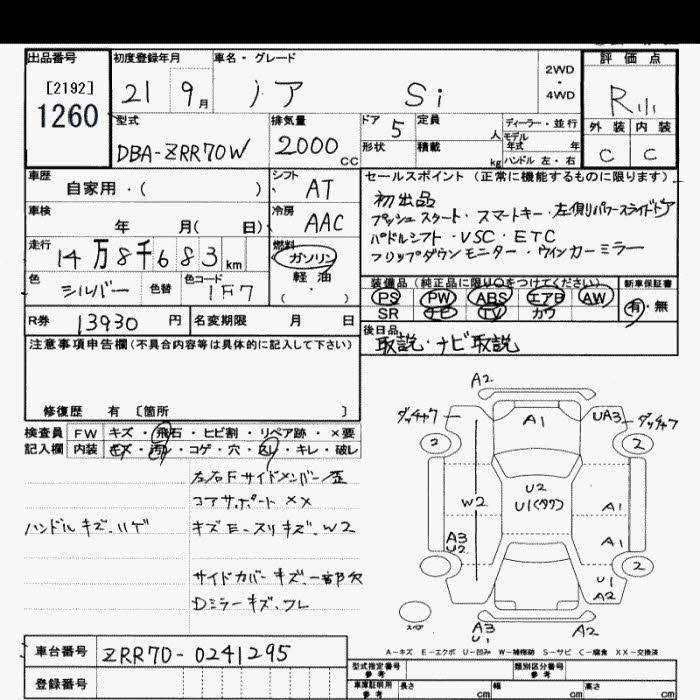 出品番号 初度登録年月 車名・グレード 2WD・4WD 評価点
[2192] 1260 21 9月 ノア Si R
型式 排気量 ドア 5 定員 人 ディーラー・並行 外装 内装
DBA-ZRR70W 2000 CC 形状 積載 kg モデル年式 年 ハンドル 左・右 C C
車歴 自家用・( ) シフト AT セールスポイント(正常に機能するものに限ります)
車検 年 月( 日) 冷房 AAC 初出品
プッシュスタート・スマートキー・左側パワースライドドア
パドルシフト・VSC・ETC
フリップダウンモニター・ウインカーミラー
走行 14万8千683km 燃料 ガソリン 軽油・( )
色 シルバー 色替 色コード 1F7
装備品(純正品に限り○をつけてください) 新車保証書
PS PW ABS エアB AW 有・無
SR ナビ TV カワ
R券 13930円 名変期限 月 日 後日品
取説・ナビ取説
注意事項申告欄(不具合内容等は具体的に記入して下さい)
修復歴 有 〔箇所 〕
検査員 FW キズ・飛石・ヒビ割・リペア跡・×要
記入欄 内装 キズ・汚れ・コゲ・穴・スレ・キレ・破レ
左右Fサイドメンバー歪
コアサポート XX
ハンドルキズ、ハゲ キズE・スリキズ、W2
サイドカバーキズ、一部欠
Dミラーキズ、ワレ
A2
ダッチャク A1 UA3 ダッチャク
2 2
U2
W2 U1(タワ) A1
A3 U2 A1
2
U1 A2
スペア A3 U1 A2
A-キズ E-エクボ U-凹み W-補修跡 S-サビ C-腐食 XX-交換済
車台番号 ZRR70-0241295
型式指定番号 参考 類別区分番号 参考
登録番号 車庫証明用 参考 長さ cm 幅 cm 高さ cm